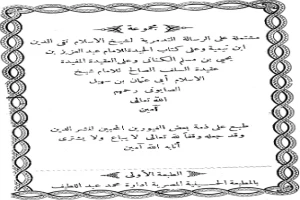 مجموعة
مشتملة على الرسالة التدمرية لشيخ الاسلام تقى الدين
ابن تيمية وعلى كتاب الحيدة للامام عبد العزيز بن
يحيى بن مسلم الكنانى وعلى العقيدة المفيدة
عقيدة السلف الصالح للامام شيخ
الاسلام أبى عثمان بن
الصابونى رحمهم
الله تعالى
آمين
طبع على ذمة بعض الغيورين المحبين لنشر الدين
وقد جعله وقفا لله تعالى لا يباع ولا يشترى
أثابه الله آمين
الطبعة الأولى
بالمطبعة الحسينية المصرية ادارة محمد عبد اللطيف